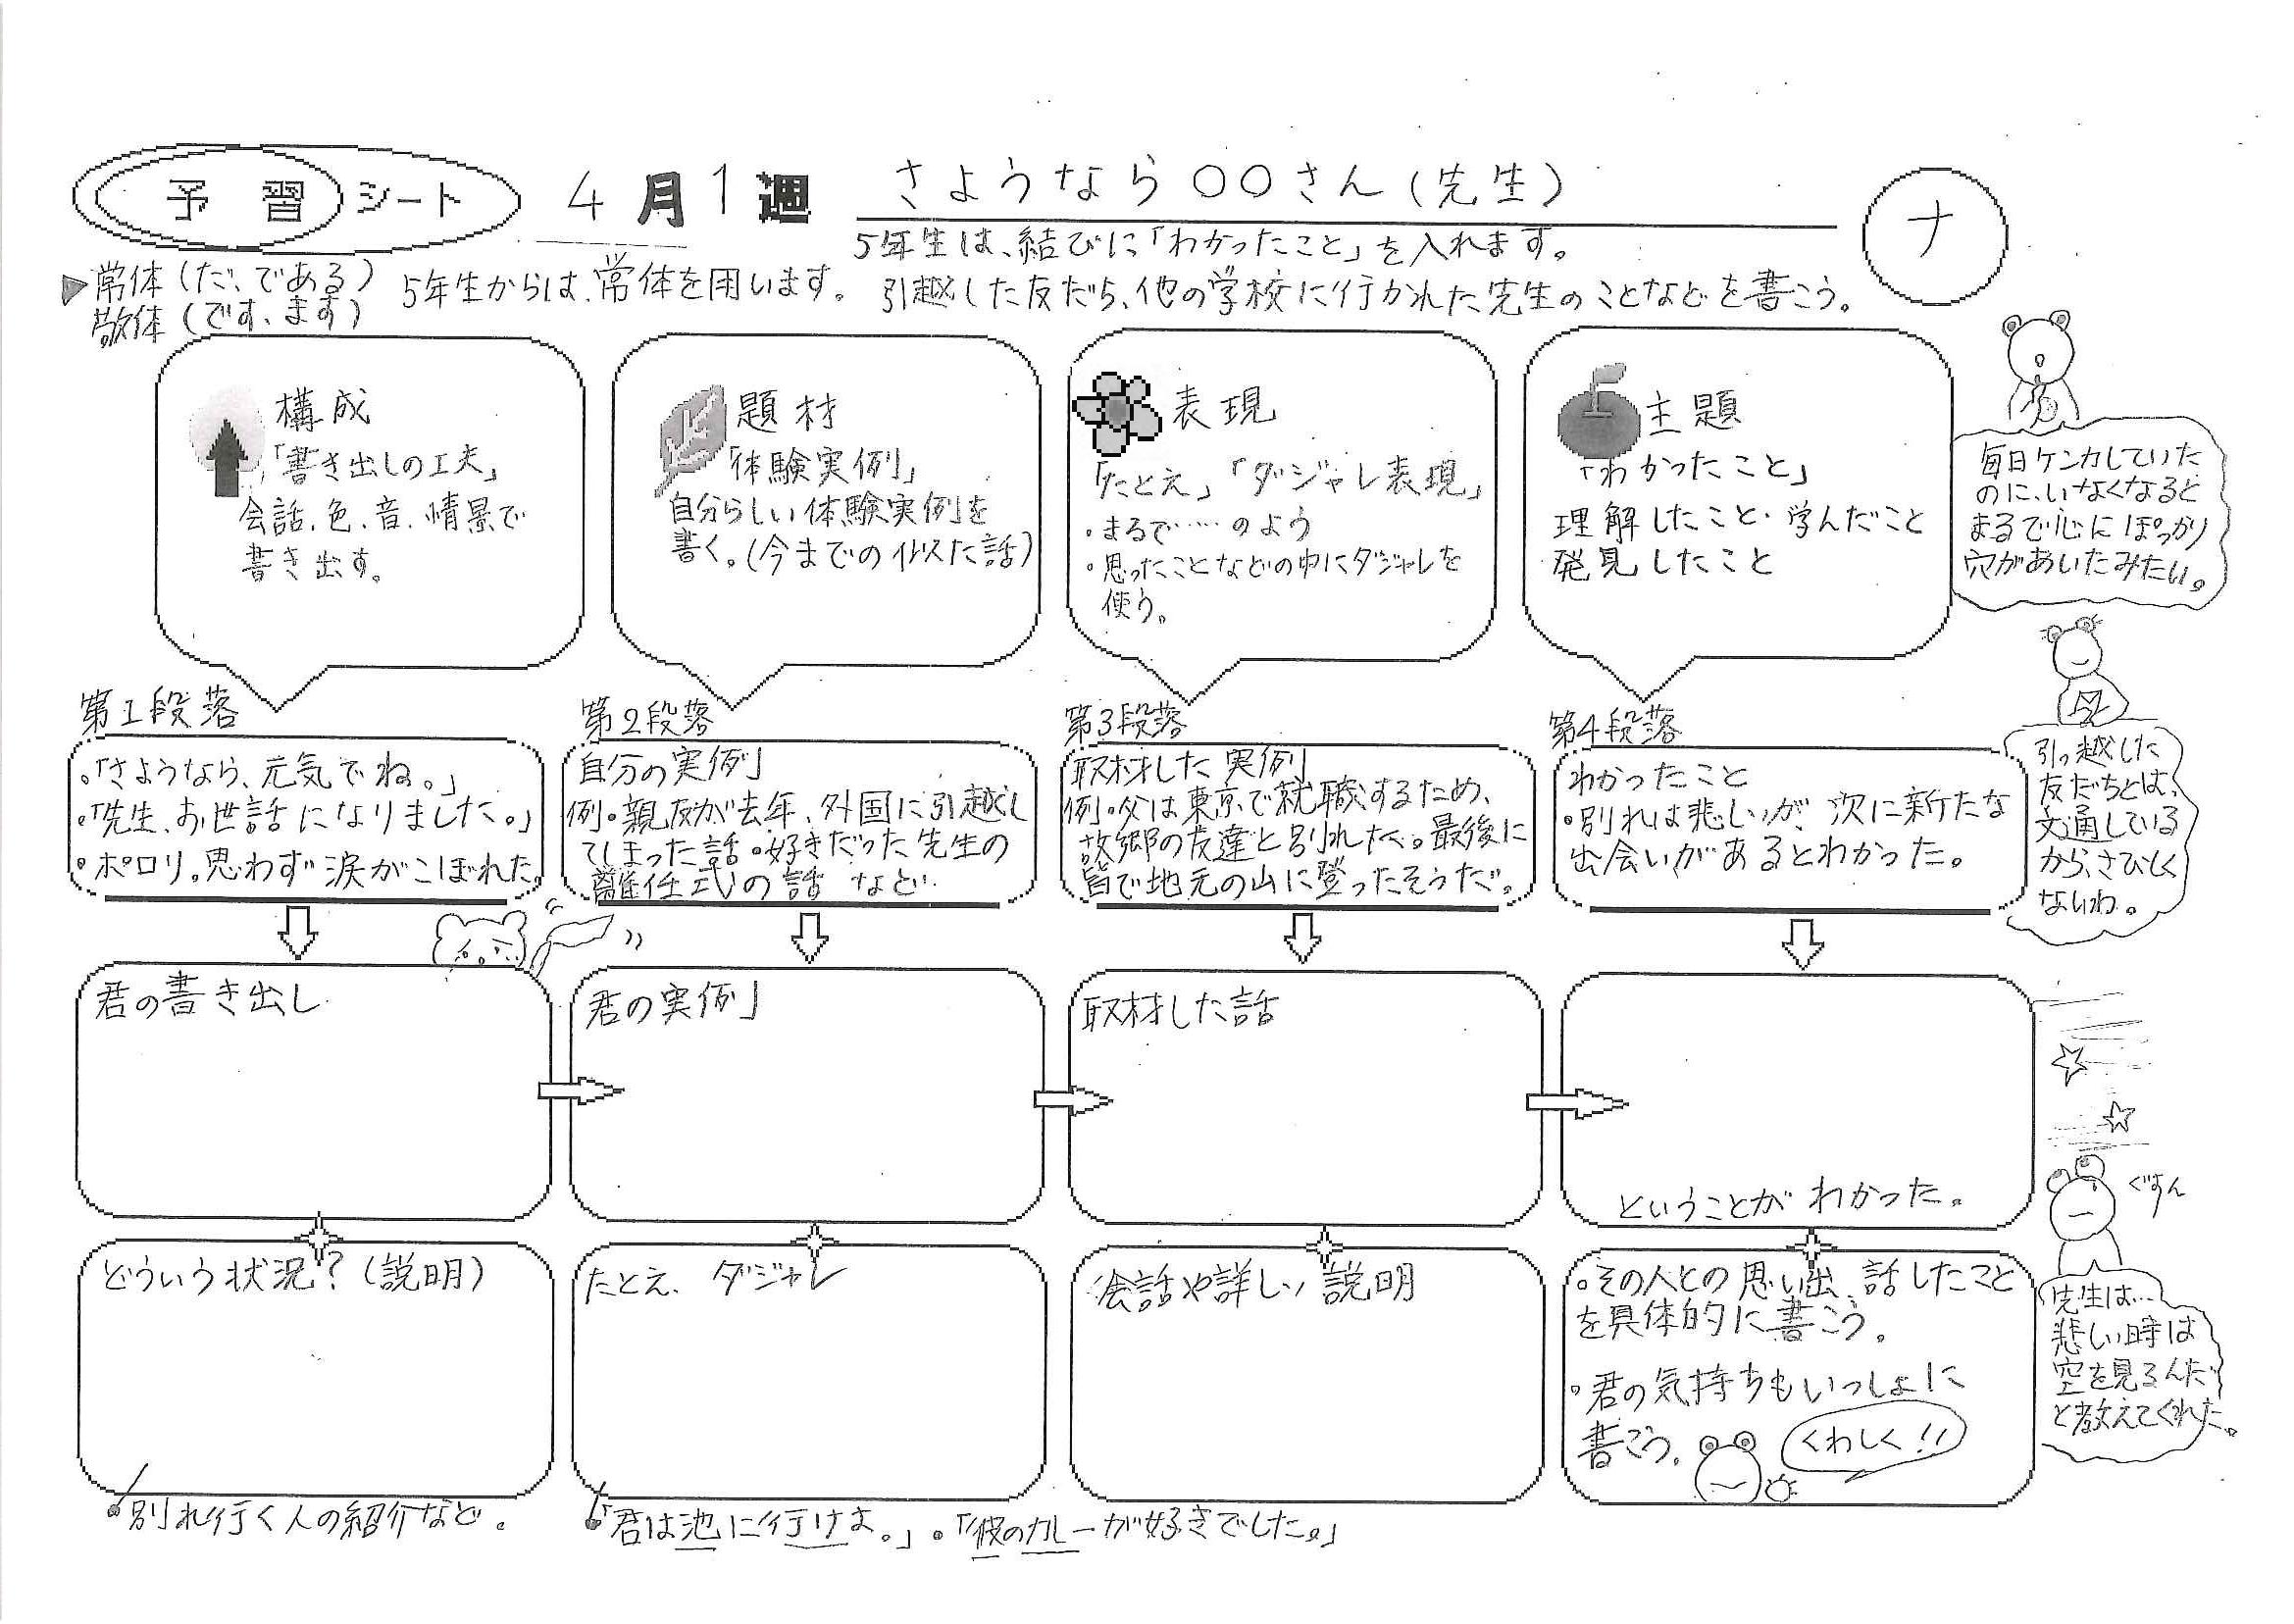 予習シート 4月1週 さようなら○○さん(先生)
ナ
5年生は、結びに「わかったこと」を入れます。
▶常体(だ、である) 5年生からは、常体を用います。 引越した友だち、他の学校に行かれた先生のことなどを書こう。
敬体(です、ます)
構成
「書き出しの工夫」
会話、色、音、情景で
書き出す。
題材
「体験実例」
自分らしい体験実例を
書く。(今までの似た話)
表現
「たとえ」「ダジャレ表現」
・まるで……のよう
・思ったことなどの中にダジャレを
使う。
主題
「わかったこと」
理解したこと・学んだこと
発見したこと
毎日ケンカしていた
のに、いなくなると
まるで心にぽっかり
穴があいたみたい。
第1段落
。「さようなら、元気でね。」
・「先生、お世話になりました。」
・ポロリ。思わず涙がこぼれた。
第2段落
自分の実例
例。親友が去年、外国に引越し
てしまった話。好きだった先生の
離任式の話 など
第3段落
取材した実例
例。父は東京で就職するため、
故郷の友達と別れた。最後に
皆で地元の山に登ったそうだ。
第4段落
わかったこと
・別れは悲しいが、次に新たな
出会いがあるとわかった。
引っ越した
友だちとは、
文通している
から、さびしく
ないわ。
君の書き出し
君の実例
取材した話
ということがわかった。
ぐすん
どういう状況?(説明)
たとえ、ダジャレ
会話や詳しい説明
。その人との思い出、話したこと
を具体的に書こう。
。君の気持ちもいっしょに
書こう。
くわしく!!
先生は…
悲しい時は
空を見るんだ
と教えてくれた。
・別れ行く人の紹介など。
・「君は池に行けよ。」。「彼のカレーが好きでした。」